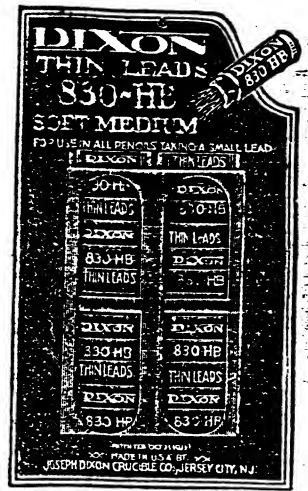 DIXON
THIN LEADS
830-HB
SOFT MEDIUM
FOR USE IN ALL PENCILS TAKING A SMALL LEAD
DIXON
830 HB
DIXON THIN LEADS
THIN LEADS
DIXON
830 HB
THIN LEADS
DIXON
830-HB
THIN LEADS
DIXON
HB
DIXON
830 HB
THIN LEADS
DIXON
830 HB
DIXON
830 HB
THIN LEADS
DIXON
830 HB
MADE IN U.S.A. BY
JOSEPH DIXON CRUCIBLE CO., JERSEY CITY, N.J.